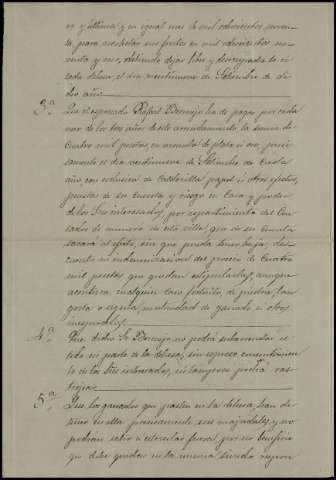 ro y última, y en igual mes de mil ochocientos noven-
ta para aprovechar sus frutos en mil ochocientos no-
venta y uno, debiendo dejar libre y desocupada la ci-
tada dehesa, el dia veintinueve de Setiembre de di-
cho año.
3ª Que el expresado Rafael Bermejo ha de pagar por cada
uno de los tres años de este arrendamiento la suma de
Cuatro mil pesetas, en moneda de plata ú oro, preci-
samente el dia veintinueve de Setiembre de cada
año, con esclusion de Calderilla, papel ú otros efectos,
puestas de su cuenta y riesgo en casa y poder
de los Sres interesados, por repartimiento del Con-
tador de numero de esta villa, que de su cuenta
sacará al efecto, sin que pueda tener baja, des-
cuento ni indemnizacion del precio de Cuatro
mil pesetas que quedan estipuladas, aunque
acontezca cualquier caso fortuito, de piedra, lan-
gosta ó sequia, mortandad de ganado ú otros
inesperados.
4ª Que dicho Sr Bermejo no podrá subarrendar el
todo ni parte de la dehesa, sin espreso consentimien-
to de los Sres interesados, ni tampoco podrá ras-
trojear.
5ª Que los ganados que pasten en la dehesa, han de
tener en ella precisamente sus majadales, y no
podrán salir á estercolar fuera, por ser beneficio
que debe quedar en la misma, siendo respon-